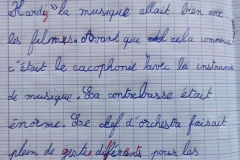 Hardy" la musique allait bien avec
les films. Avant que cela commence
c'était le cacophonie avec les instrume
de musique. La contrebasse était
énorme. Le chef d'orchestre faisait
plein de gestes différents pour les